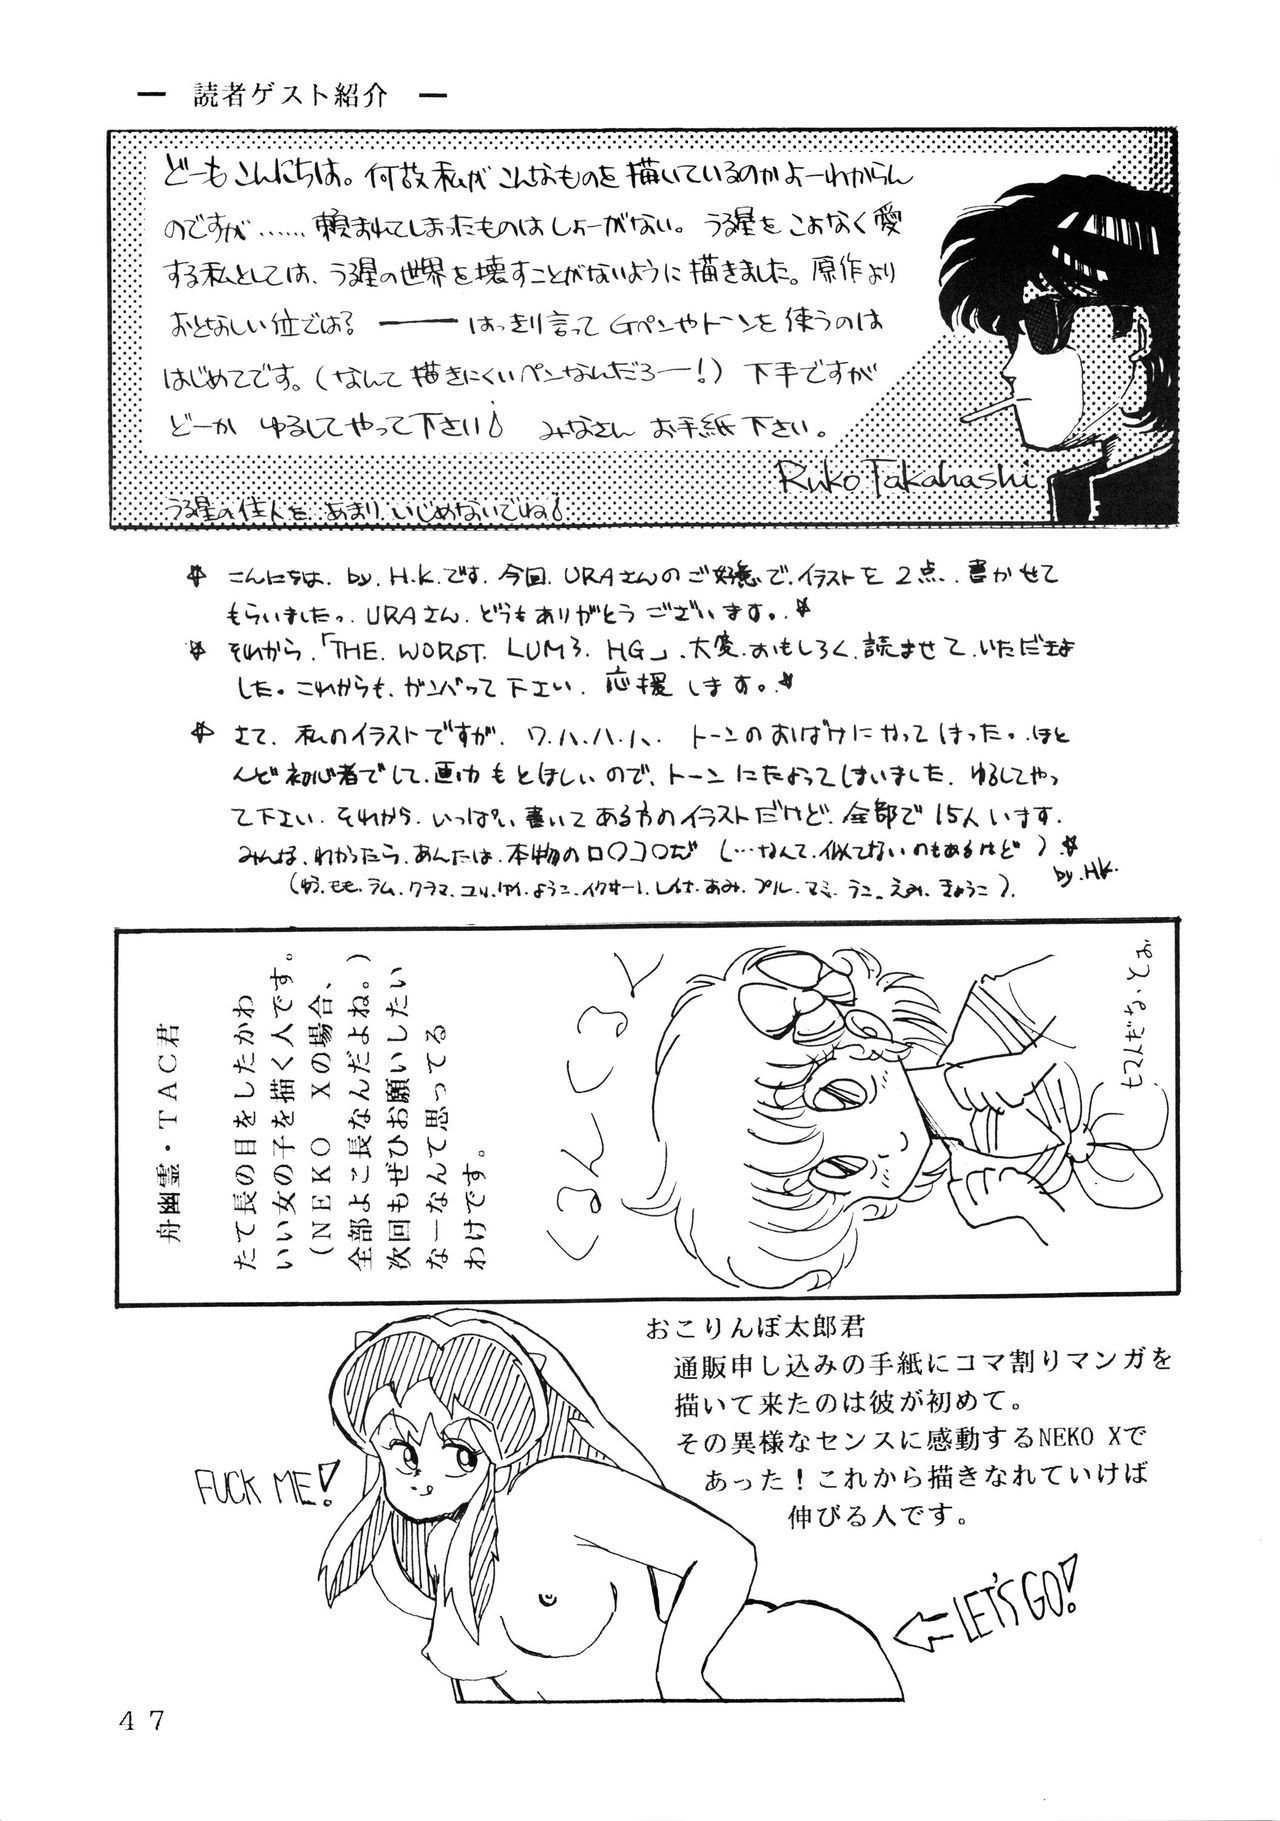 ― 読者ゲスト紹介 ―
どーもこんにちは。何故私がこんなものを描いているのかよーわからん
のですが……頼まれてしまったものはしょーがない。うる星をこよなく愛
する私としては、うる星の世界を壊すことがないように描きました。原作より
おとなしい位では？ ――はっきり言ってGペンやトーンを使うのは
はじめてです。(なんて描きにくいペンなんだろー!) 下手ですが
どーか ゆるしてやって下さい♪ みなさん お手紙 下さい。
Ruko Takahashi
うる星の住人を あまり いじめないでね♪
☆ こんにちは、by. H.K.です。今回、URAさんのご好意で、イラストを2点、書かせて
もらいましたっ。URAさん、どうもありがとうございます。☆
☆ それから、「THE. WORST. LUMろ. HG」、大変、おもしろく、読ませて、いただきま
した。これからも、ガンバって下さい、応援します。☆
☆ さて、私のイラストですが、ワ、ハ、ハ、ハ、トーンのおばけにやってはった。ほと
んど初心者でして、画力もとぼしいので、トーンにたよってしまいました、ゆるしてやっ
て下さい、それから、いっぱい書いてある方のイラストだけど、全部で15人います、
みんな、わかったら、あんたは、本物のロ〇コ〇だ (…なんて、似てないのもあるけど)☆
by. H.K.
モモ、ラム、クラマ、ユリ、ようこ、イクサー1、レイナ、あみ、プル、マミ、えみ、きょうこ).
舟幽霊・TAC君
たて長の目をしたかわ
いい女の子を描く人です。
(NEKO Xの場合、
全部よこ長なんだよね。)
次回もぜひお願いしたい
なーなんて思ってる
わけです。
くるんくるン
ヒマんだな、とお
おこりんぼ太郎君
通販申し込みの手紙にコマ割りマンガを
描いて来たのは彼が初めて。
その異様なセンスに感動するNEKO Xで
あった！これから描きなれていけば
伸びる人です。
FUCK ME!
LET'S GO!
47